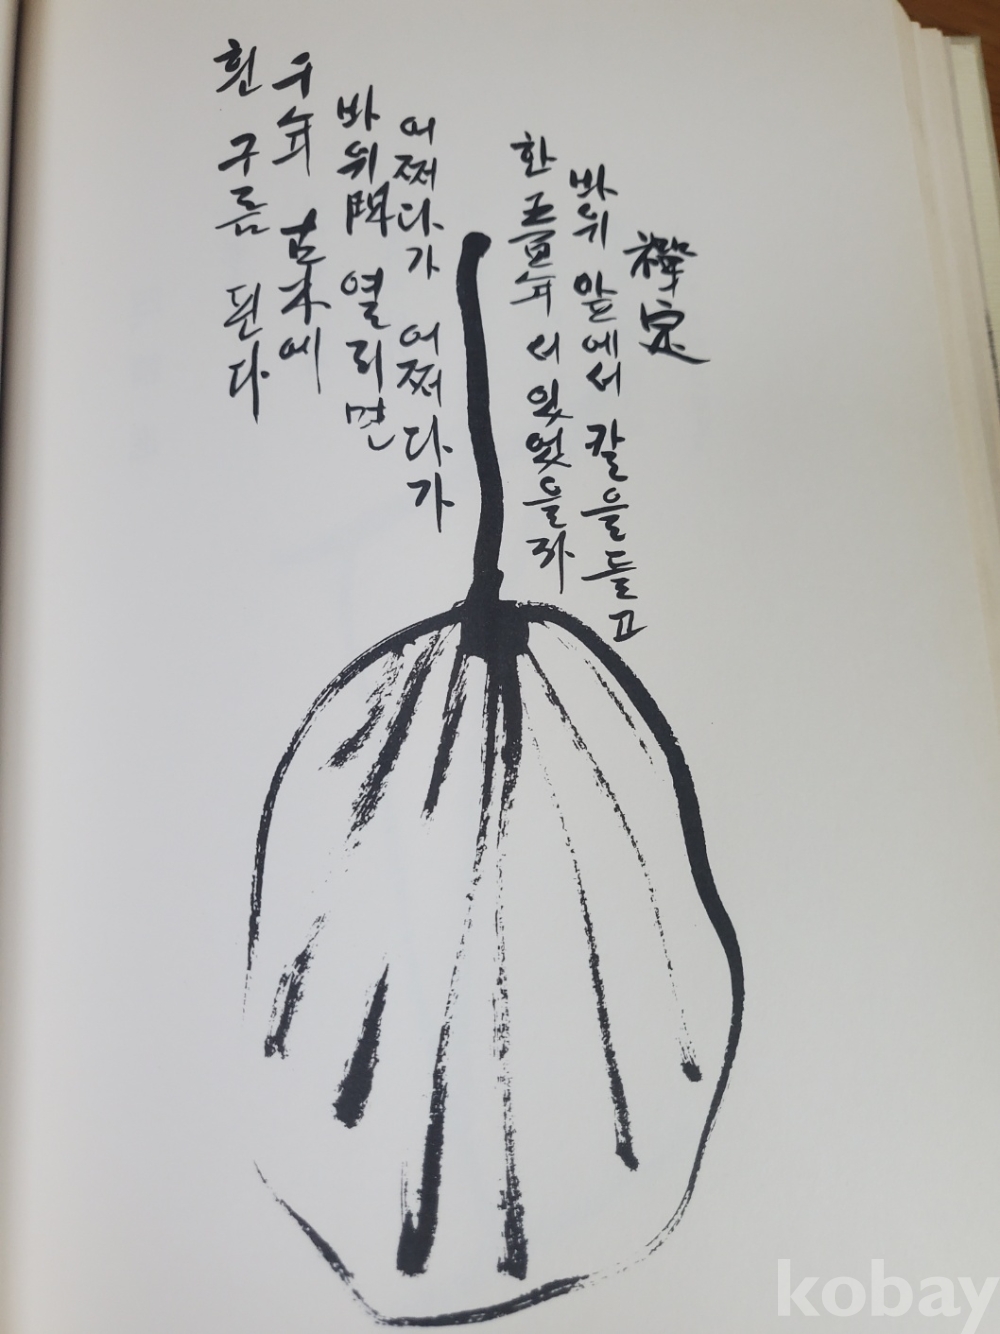 禪定
바위 앞에서 칼을들고
한 五百年 서 있었을까
어쩌다가 어쩌다가
바위門 열리면
千年 古木에
흰 구름 된다
kobay